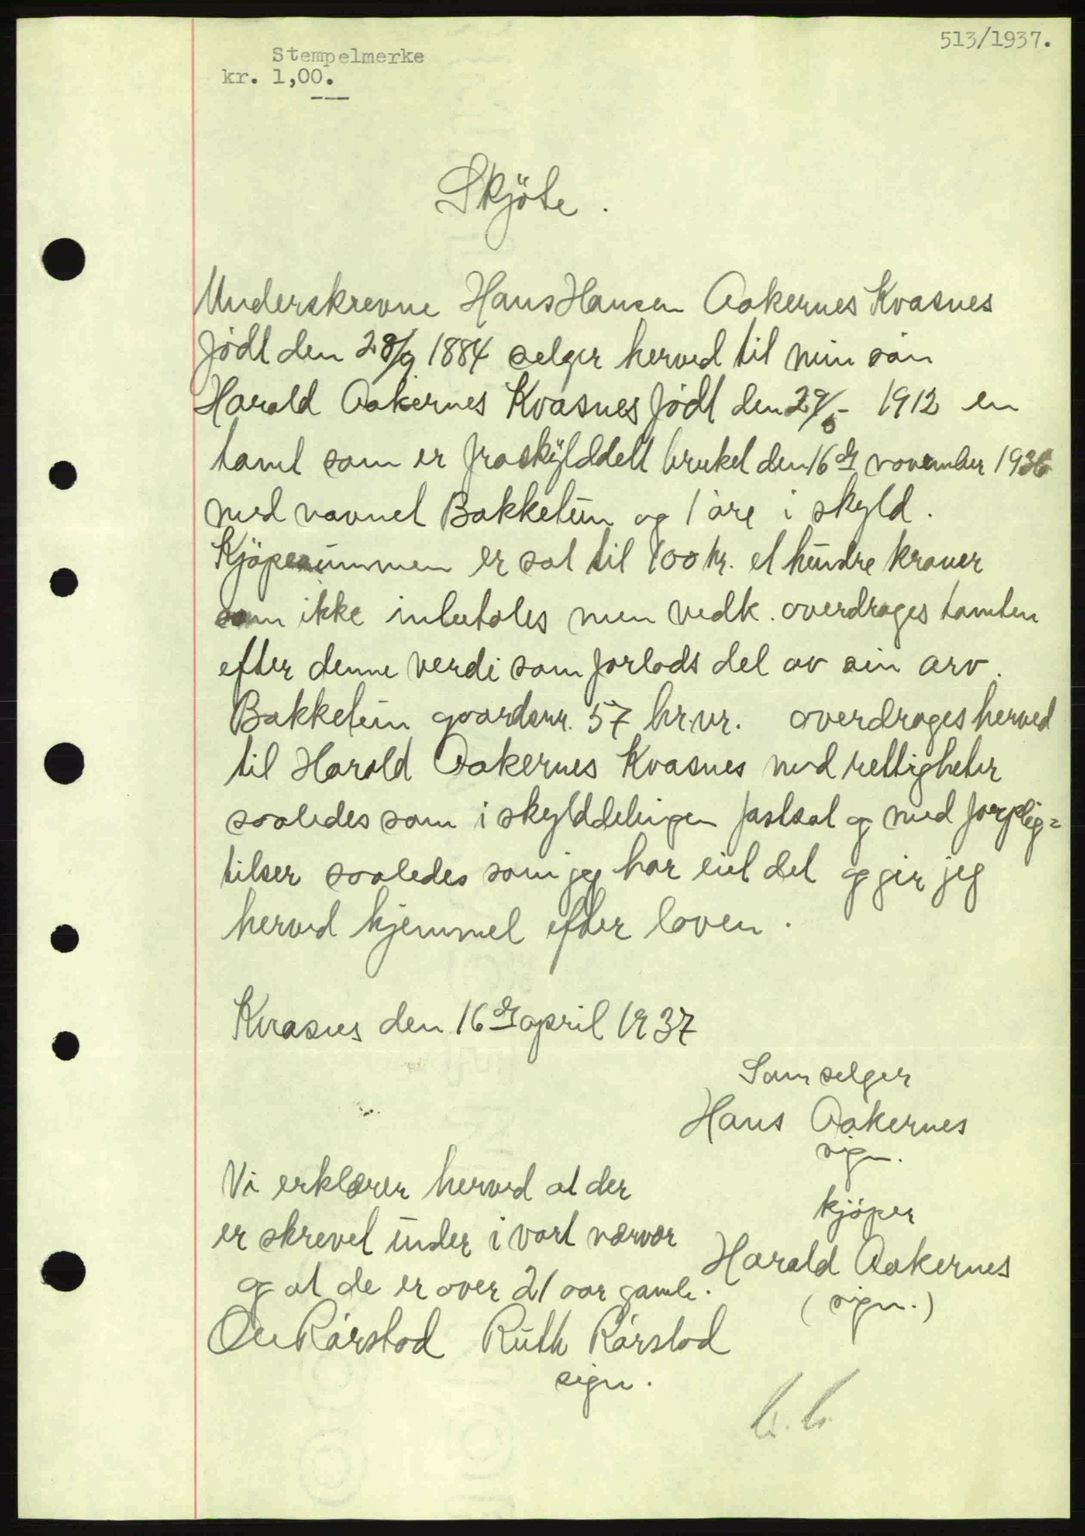 513/1937.
Stempelmerke
kr. 1,00.
Skjöte.
Underskrevne Hans Hansen Aakernes Kvasnes
født den 28/9 1884 selger herved til min sön
Harald Aakernes Kvasnes født den 29/5- 1912 en
tomt som er fraskylddelt bruket den 16de november 1936
med navnet Bakketun og 1 öre i skyld.
Kjöpesummen er sat til 100 kr. et hundre kroner
som ikke inbetales men vedk. overdrages tomten
efter denne verdi som forlods del av sin arv.
Bakketun gaardsnr. 57 br.nr. overdrages herved
til Harald Aakernes Kvasnes med rettigheter
saaledes som i skylddelingen fastsat og med forplig=
telser saaledes som jeg har eiet det og gir jeg
herved hjemmel efter loven.
Kvasnes den 16de april 1937
Som selger
Hans Aakernes
sign.
Vi erklærer herved at der
er skrevet under i vort nærvær
og at de er over 21 aar gamle.
kjöper
Harald Aakernes
(sign.)
Ole Rörstad Ruth Rörstad
sign.